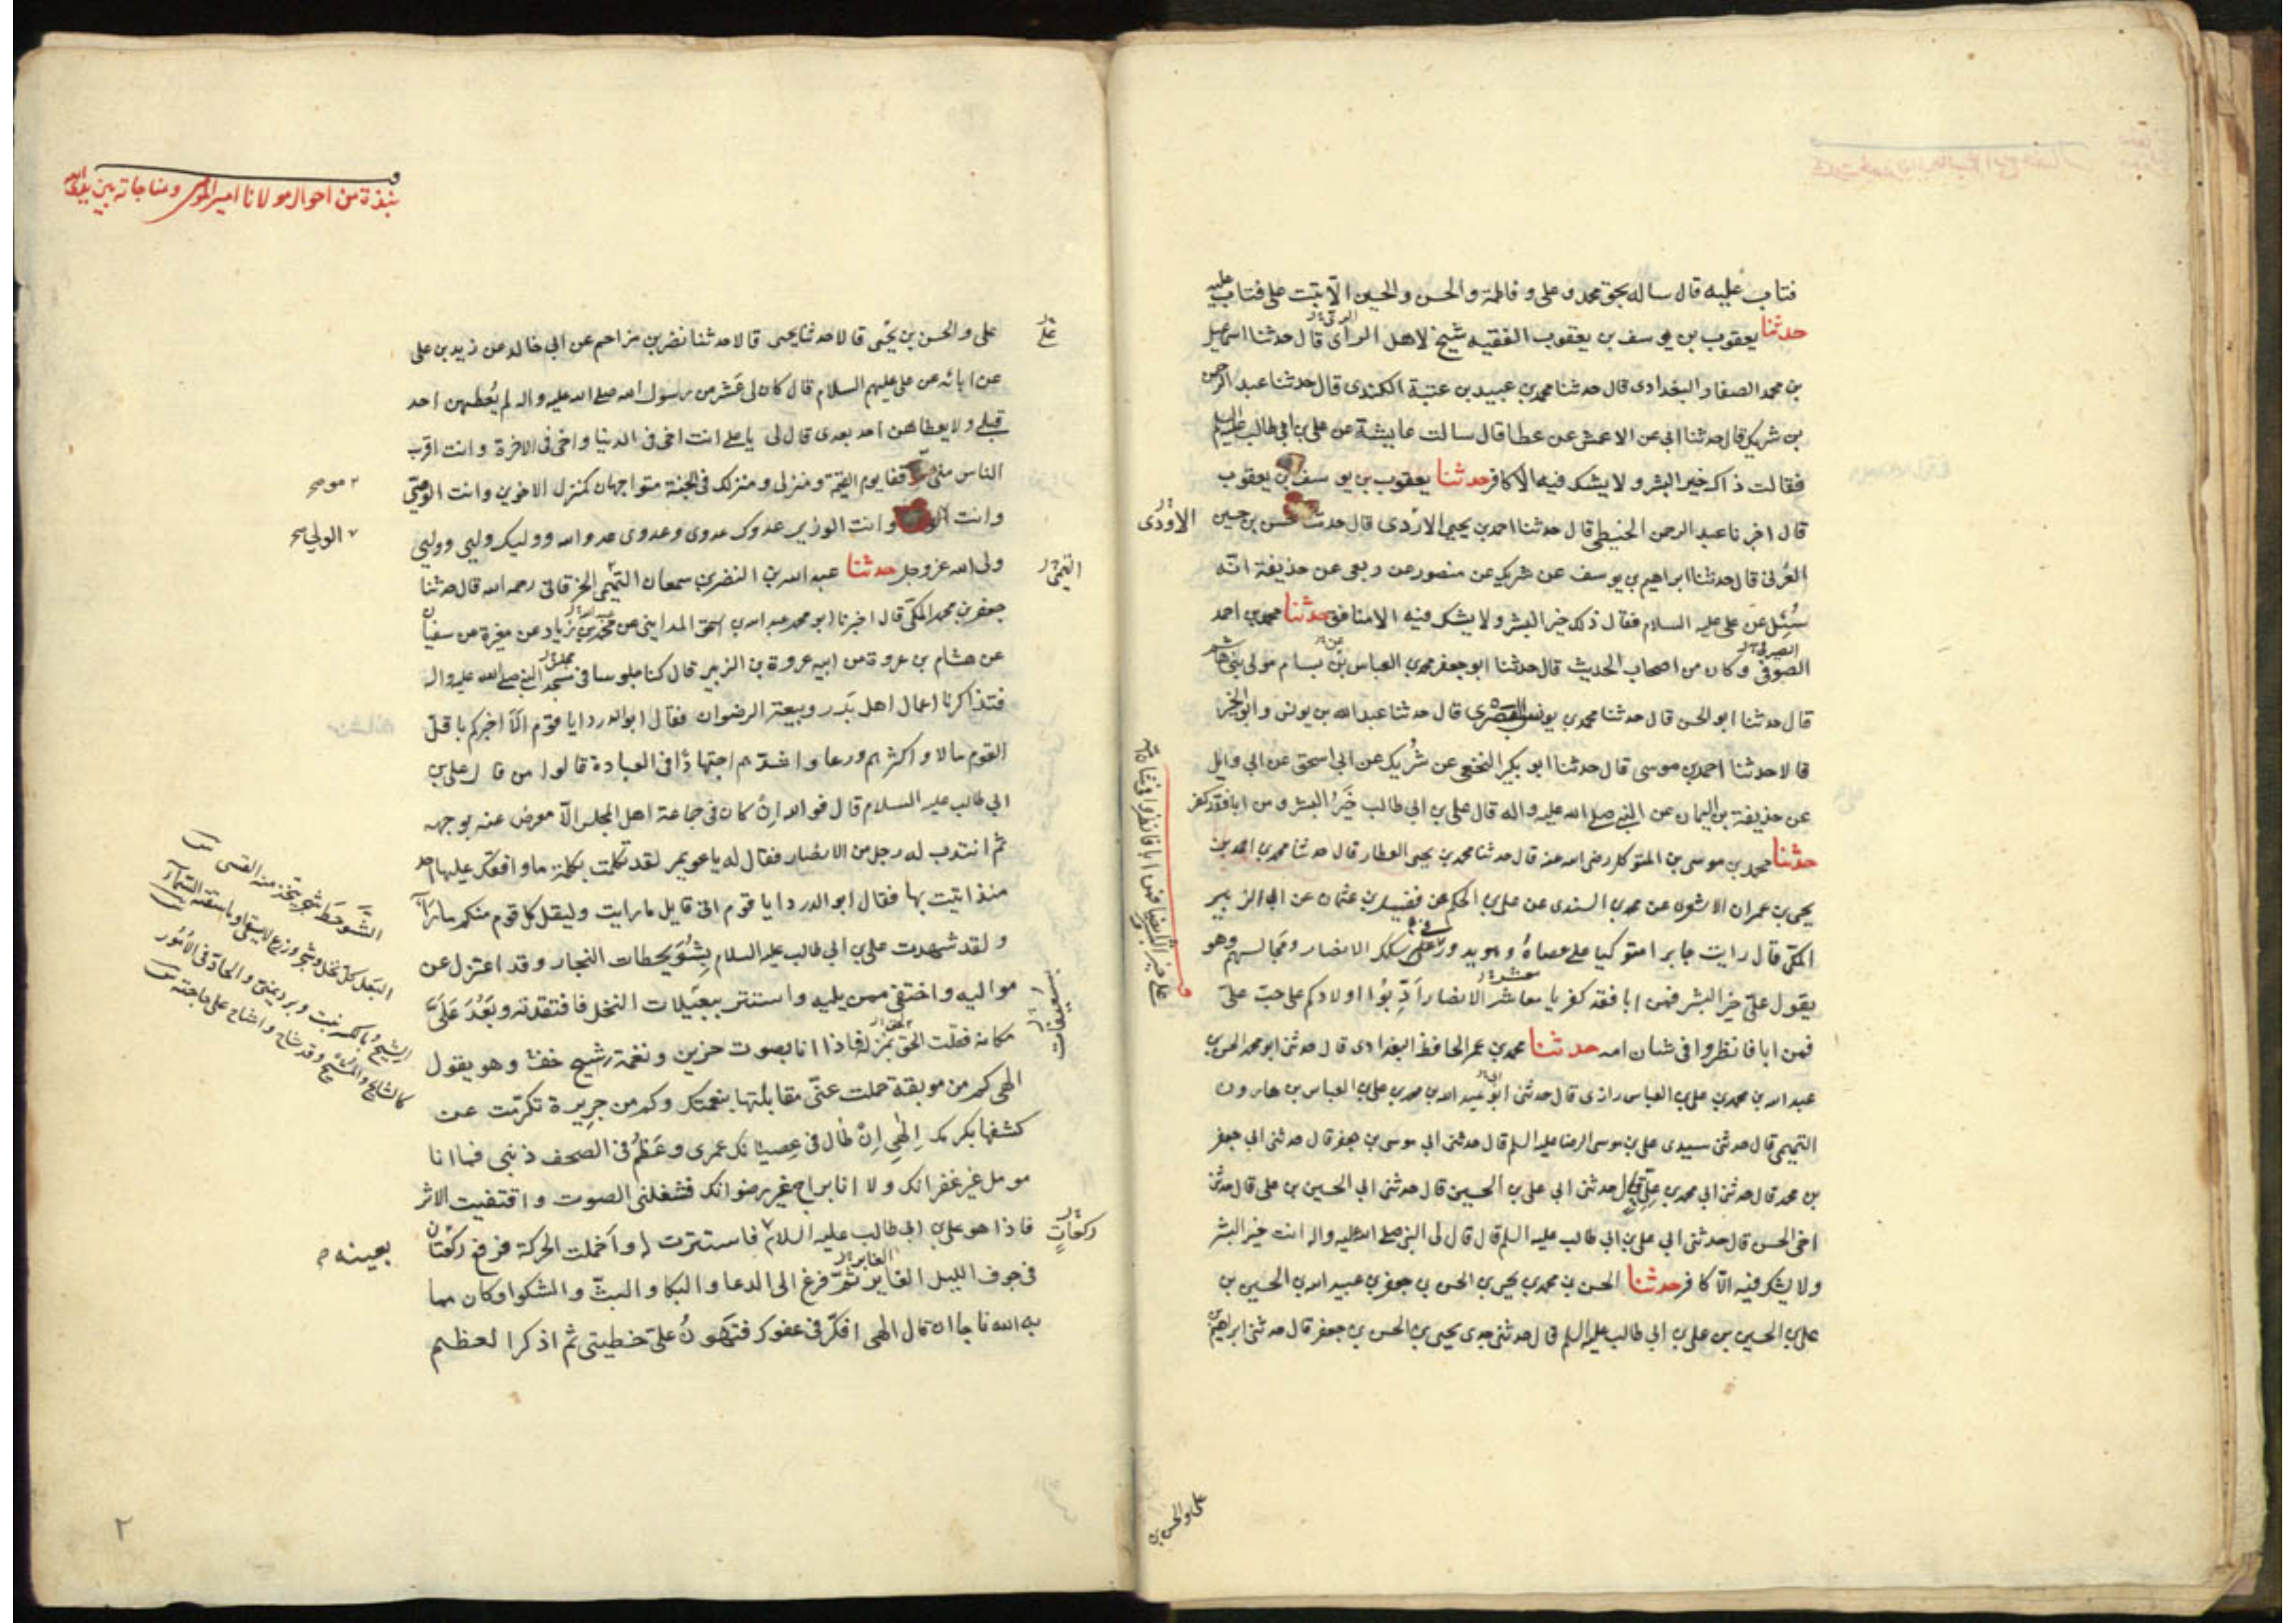 فتاب عليه قال ساله بحق محمد و على و فاطمة و الحسن والحسين الا تبت على فتاب عليه
حدثنا يعقوب بن يوسف بن يعقوب الفقيه شيخ لاهل الراى قال حدثنا اسمعيل
بن محمد الصفار البغدادى قال حدثنا محمد بن عبيد بن عتبة الكندى قال حدثنا عبد الرحمن
بن شريك قال حدثنا ابى عن الاعمش عن عطا قال سالت عايشة عن على بن ابى طالب عليه السلم
فقالت ذاك خير البشر و لا يشك فيه الا كافر حدثنا يعقوب بن يوسف بن يعقوب
قال اخبرنا عبد الرحمن الخيطى قال حدثنا احمد بن يحيى الازدى قال حدثنا حسن بن حسين
الاودى
العرنى قال حدثنا ابراهيم بن يوسف عن شريك عن منصور عن ربعى عن حذيفة انه
سُئِل عن على عليه السلام فقال ذلك خير البشر و لا يشك فيه الا منافق حدثنا محمد بن احمد
الصوفى و كان من اصحاب الحديث قال حدثنا ابو جعفر محمد بن العباس بن بسام مولى بنى هاشم
قال حدثنا ابو الحسن قال حدثنا محمد بن يونس البصرى قال حدثنا عبد الله بن يونس و ابو الخير
قالا حدثنا احمد بن موسى قال حدثنا ابو بكير النخعى عن شريك عن ابى اسحق عن ابى وايل
عن حذيفة بن اليمان عن النبى صلى الله عليه و اله قال على بن ابى طالب خَيرُ البشر و من ابا فقد كفر
حدثنا محمد بن موسى بن المتوكل رضى الله عنه قال حدثنا محمد بن يحيى العطار قال حدثنا محمد بن احمد بن
يحيى بن عمران الاشعرى عن محمد بن السندى عن على بن الحكم عن فضيل بن عثمان عن ابى الزبير
المكى قال رايت جابرا متوكيا على عصاهُ و هو يدور على سكك الانصار و مجالسهم وهو
يقول على خير البشر فمن ابا فقد كفر يا معاشر الانصار اَدِّبُوا اولادكم على حب على
فمن ابا فانظروا فى شان امه حدثنا محمد بن عمر الحافظ البغدادى قال حدثنى ابو محمد الحسن بن
عبد الله بن محمد بن على بن العباس رازى قال حدثنى ابو عبد الله بن محمد بن على بن العباس بن هارون
التميمى قال حدثنى سيدى على بن موسى الرضا عليه السلم قال حدثنى ابى موسى بن جعفر قال حدثنى ابى جعفر
بن محمد قال حدثنى ابى محمد بن على قال حدثنى ابى على بن الحسين قال حدثنى ابى الحسين بن على قال حدثنى
اخى الحسن قال حدثنى ابى على بن ابى طالب عليه السلم قال قال لى النبى صلى الله عليه و اله انت خير البشر
و لا يشك فيه الا كافر حدثنا الحسن بن محمد بن يحيى بن الحسن بن جعفر بن عبيد الله بن الحسين بن
على بن الحسين بن على بن ابى طالب عليه السلم قال حدثنى جدى يحيى بن الحسن بن جعفر قال حدثنى ابراهيم بن
على و الحسن بن
نبذة من احوال مولانا امير المؤمنين و مناجاته بين يدى الله
على و الحسن بن يحيى قالا حدثنا يحيى قالا حدثنا نضر بن مزاحم عن ابى خالد عن زيد بن على
عن ابائه عن على عليهم السلام قال كان لى عَشر من رسول الله صلى الله عليه و اله لم يُعطهن احد
قبلى و لا يعطاهن احد بعدى قال لى يا على انت اخى فى الدنيا و اخى فى الاخرة و انت اقرب
الناس منى موقفا يوم القيمة و منزلى و منزلك فى الجنة متواجهان كمنزل الاخوين و انت الوصى
و انت الولى و انت الوزير عدوك عدوى و عدوى عدو الله و وليك وليى و وليى
الولى صح
ولى الله عز و جل حدثنا عبد الله بن النضر بن سمعان التميمى الخرقانى رحمه الله قال حدثنا
جعفر بن محمد المكى قال اخبرنا ابو محمد عبد الله بن اسحق المداينى عن محمد بن زياد عن مغيرة عن سفيان
عن هشام بن عروة عن ابيه عروة بن الزبير قال كنا جلوسا فى مسجد النبى صلى الله عليه و اله
فتذاكرنا اعمال اهل بَدر و بيعة الرضوان فقال ابو الدردا يا قوم الا اخبركم باقل
القوم مالا و اكثرهم ورعا و اشدهم اجتهادًا فى العبادة قالوا من قال على بن
ابى طالب عليه السلام قال فو الله اِن كان فى جماعة اهل المجلس الا معرض عنه بوجهه
ثم انتدب له رجل من الانصار فقال له يا عويمر لقد تكلمت بكلمة ما وافقك عليها احد
منذ اتيت بها فقال ابو الدردا يا قوم انى قايل ما رايت و ليقل كل قوم منكم ما راى
و لقد شهدت على بن ابى طالب عليه السلام بِشُوَيحطات النجار و قد اعتزل عن
مواليه و اختفى ممن يليه و استتر ببعيلات النخل فافتقدته و بَعُدَ عَلَىَّ
مكانه فقلت الحق بمنزله فاذا انا بصوت حزين و نغمة شجى خفٍ و هو يقول
الهى كم من موبقة حملت عنى مقابلتها بنعمتك و كم من جريرة تكرمت عن
كشفها بكرمك اِلهى اِن طال فى عصيانك عمرى و عَظُم فى الصحف ذنبى فما انا
مومل غير غفرانك و لا انا براج غير رضوانك فشغلنى الصوت و اقتفيت الاثر
فاذا هو على بن ابى طالب عليه السلام فاستترت له و اَخملت الحركة فركع ركعتان
ركعاتٍ
بعينه
فى جوف الليل الغابر ثم فرغ الى الدعا و البكا و البث و الشكوا فكان مما
به الله ناجا ان قال الهى افكر فى عفوك فتهونُ علىّ خطيتى ثم اذكر العظيم
الشَّوحَط شجر يتخذ منه القسى
٢